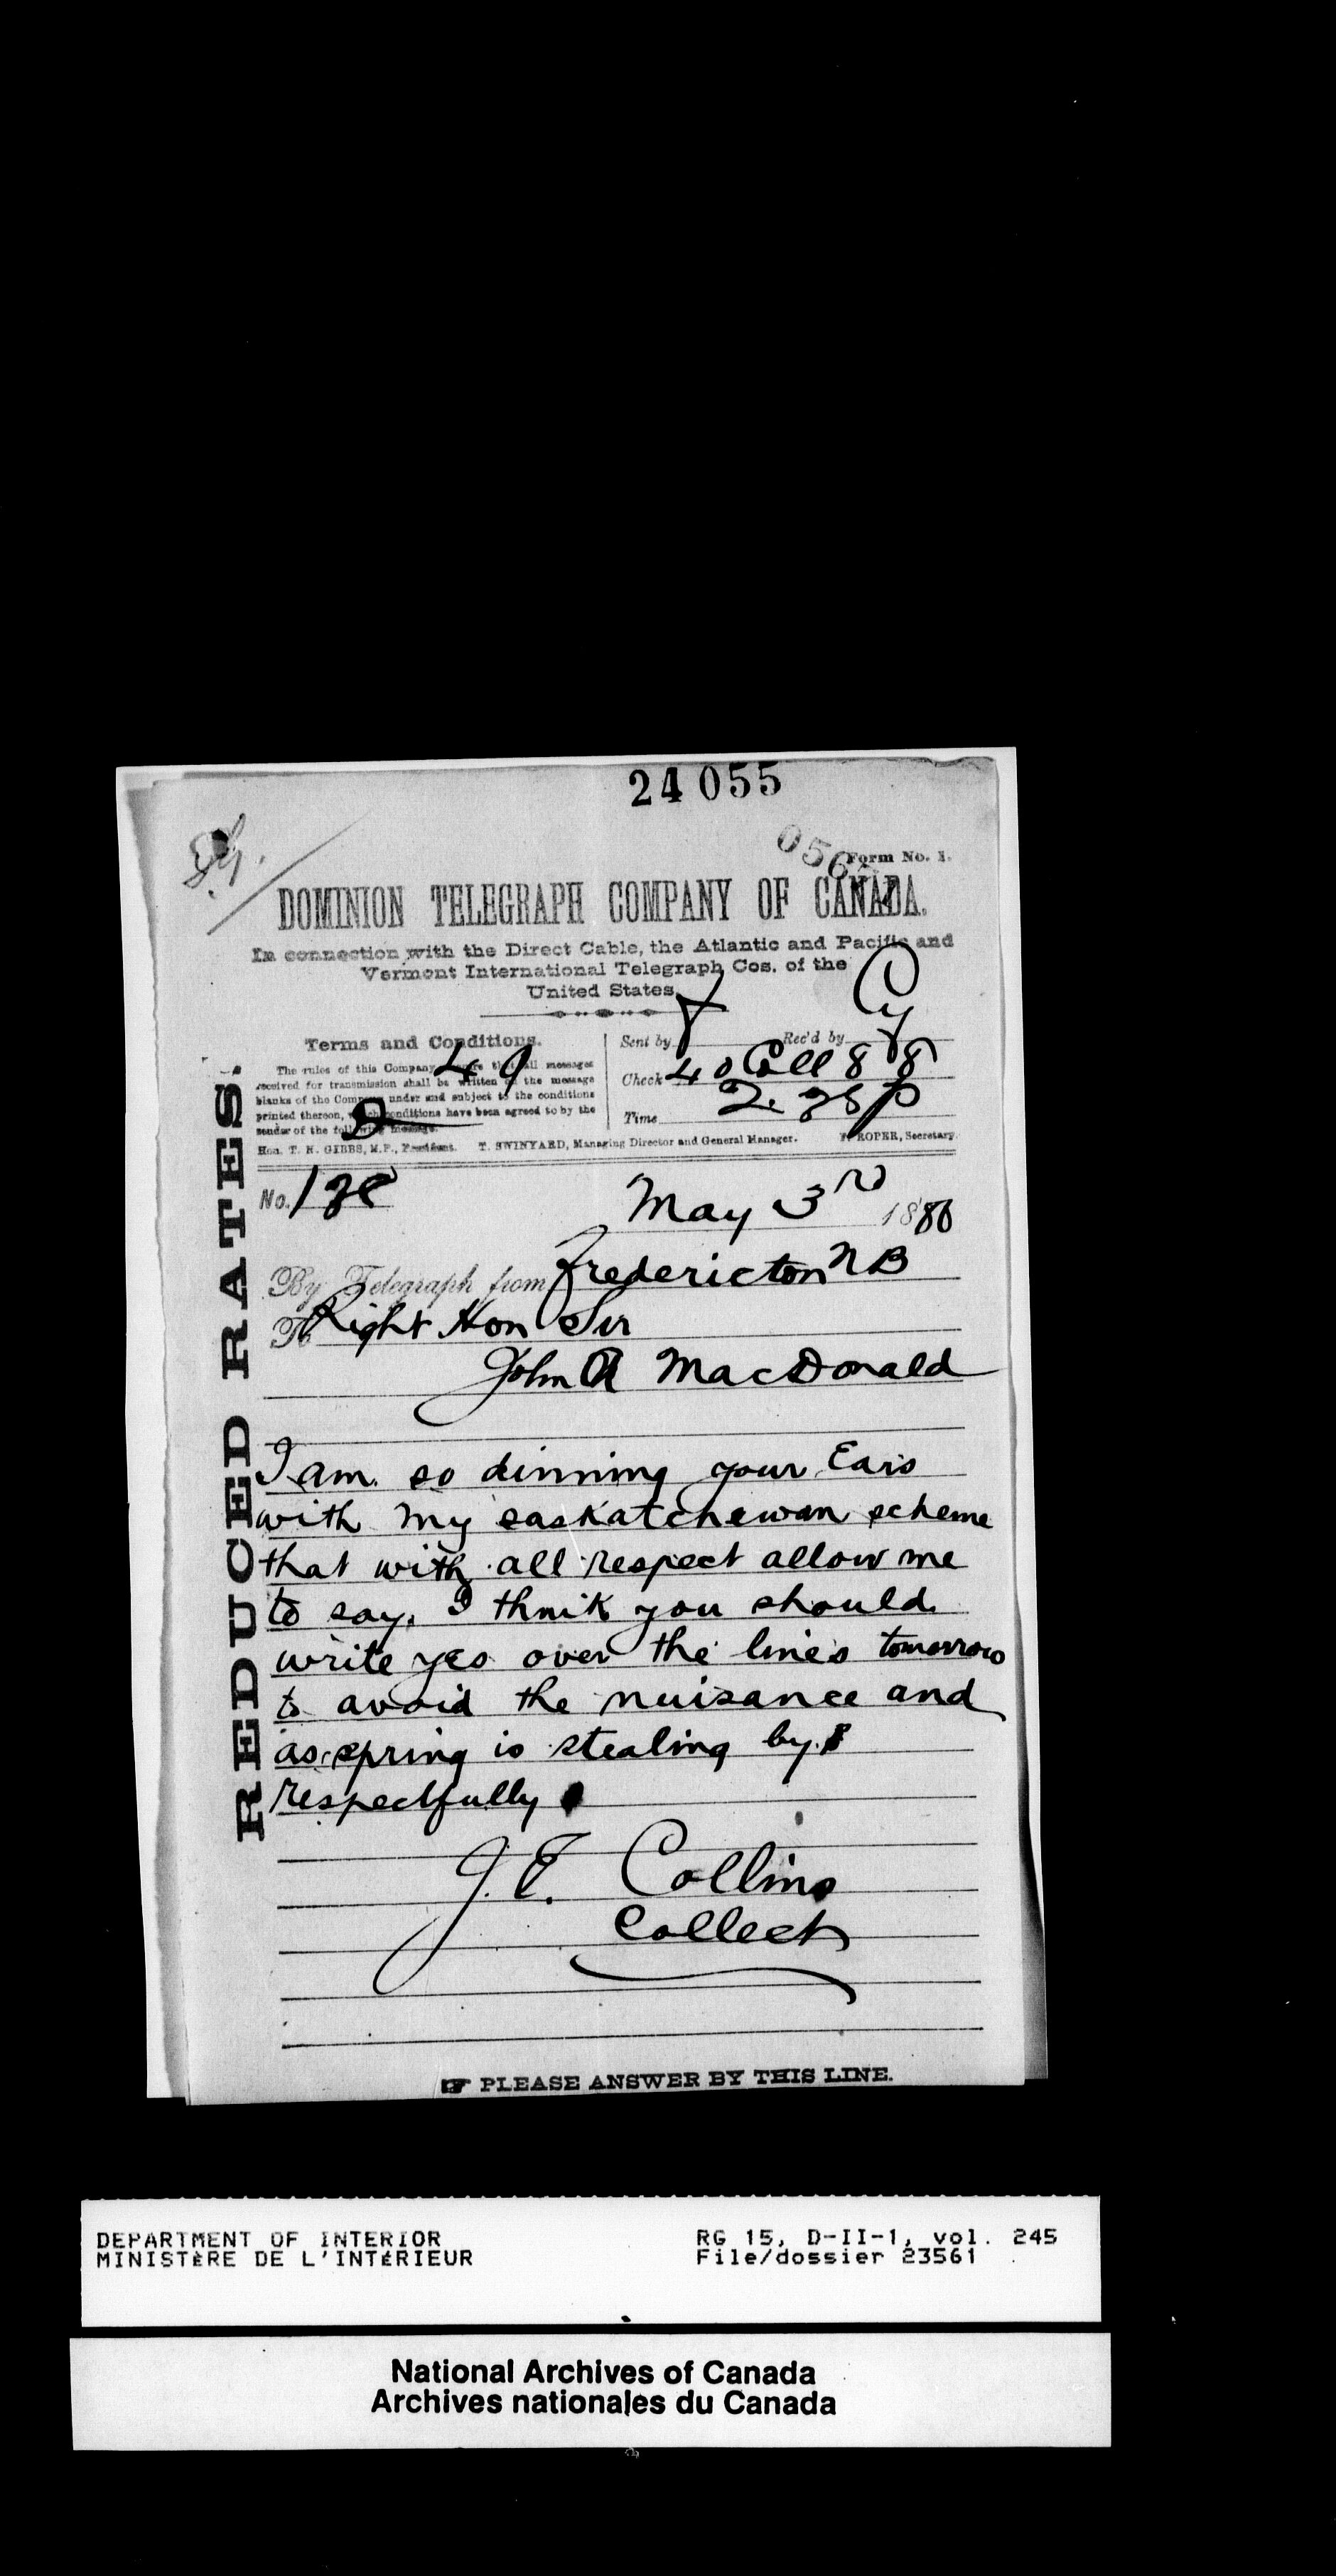 24055
056
Form No. 1.
DOMINION TELEGRAPH COMPANY OF CANADA.
In connection with the Direct Cable, the Atlantic and Pacific and
Vermont International Telegraph Cos. of the
United States.
Terms and Conditions.
The rules of this Company require that all messages
received for transmission shall be written on the message
blanks of the Company under and subject to the conditions
printed thereon, which conditions have been agreed to by the
sender of the following message.
49
Sent by Rec'd by Cy
Check 40 Coll 88
Time
Hon. T. N. GIBBS, M.P., President. T. SWINYARD, Managing Director and General Manager. F. ROPER, Secretary.
REDUCED RATES.
No.
May 3rd 1880
By Telegraph from Fredericton NB
To Right Hon Sir
John A MacDonald
I am so dinning your Ears
with my saskatchewan scheme
that with all respect allow me
to say, I think you should
write yes over the lines tomorrow
to avoid the nuisance and
as spring is stealing by
respectfully
J. E. Collins
Collect
☞ PLEASE ANSWER BY THIS LINE.
DEPARTMENT OF INTERIOR
MINISTÈRE DE L'INTÉRIEUR
RG 15, D-II-1, vol. 245
File/dossier 23561
National Archives of Canada
Archives nationales du Canada